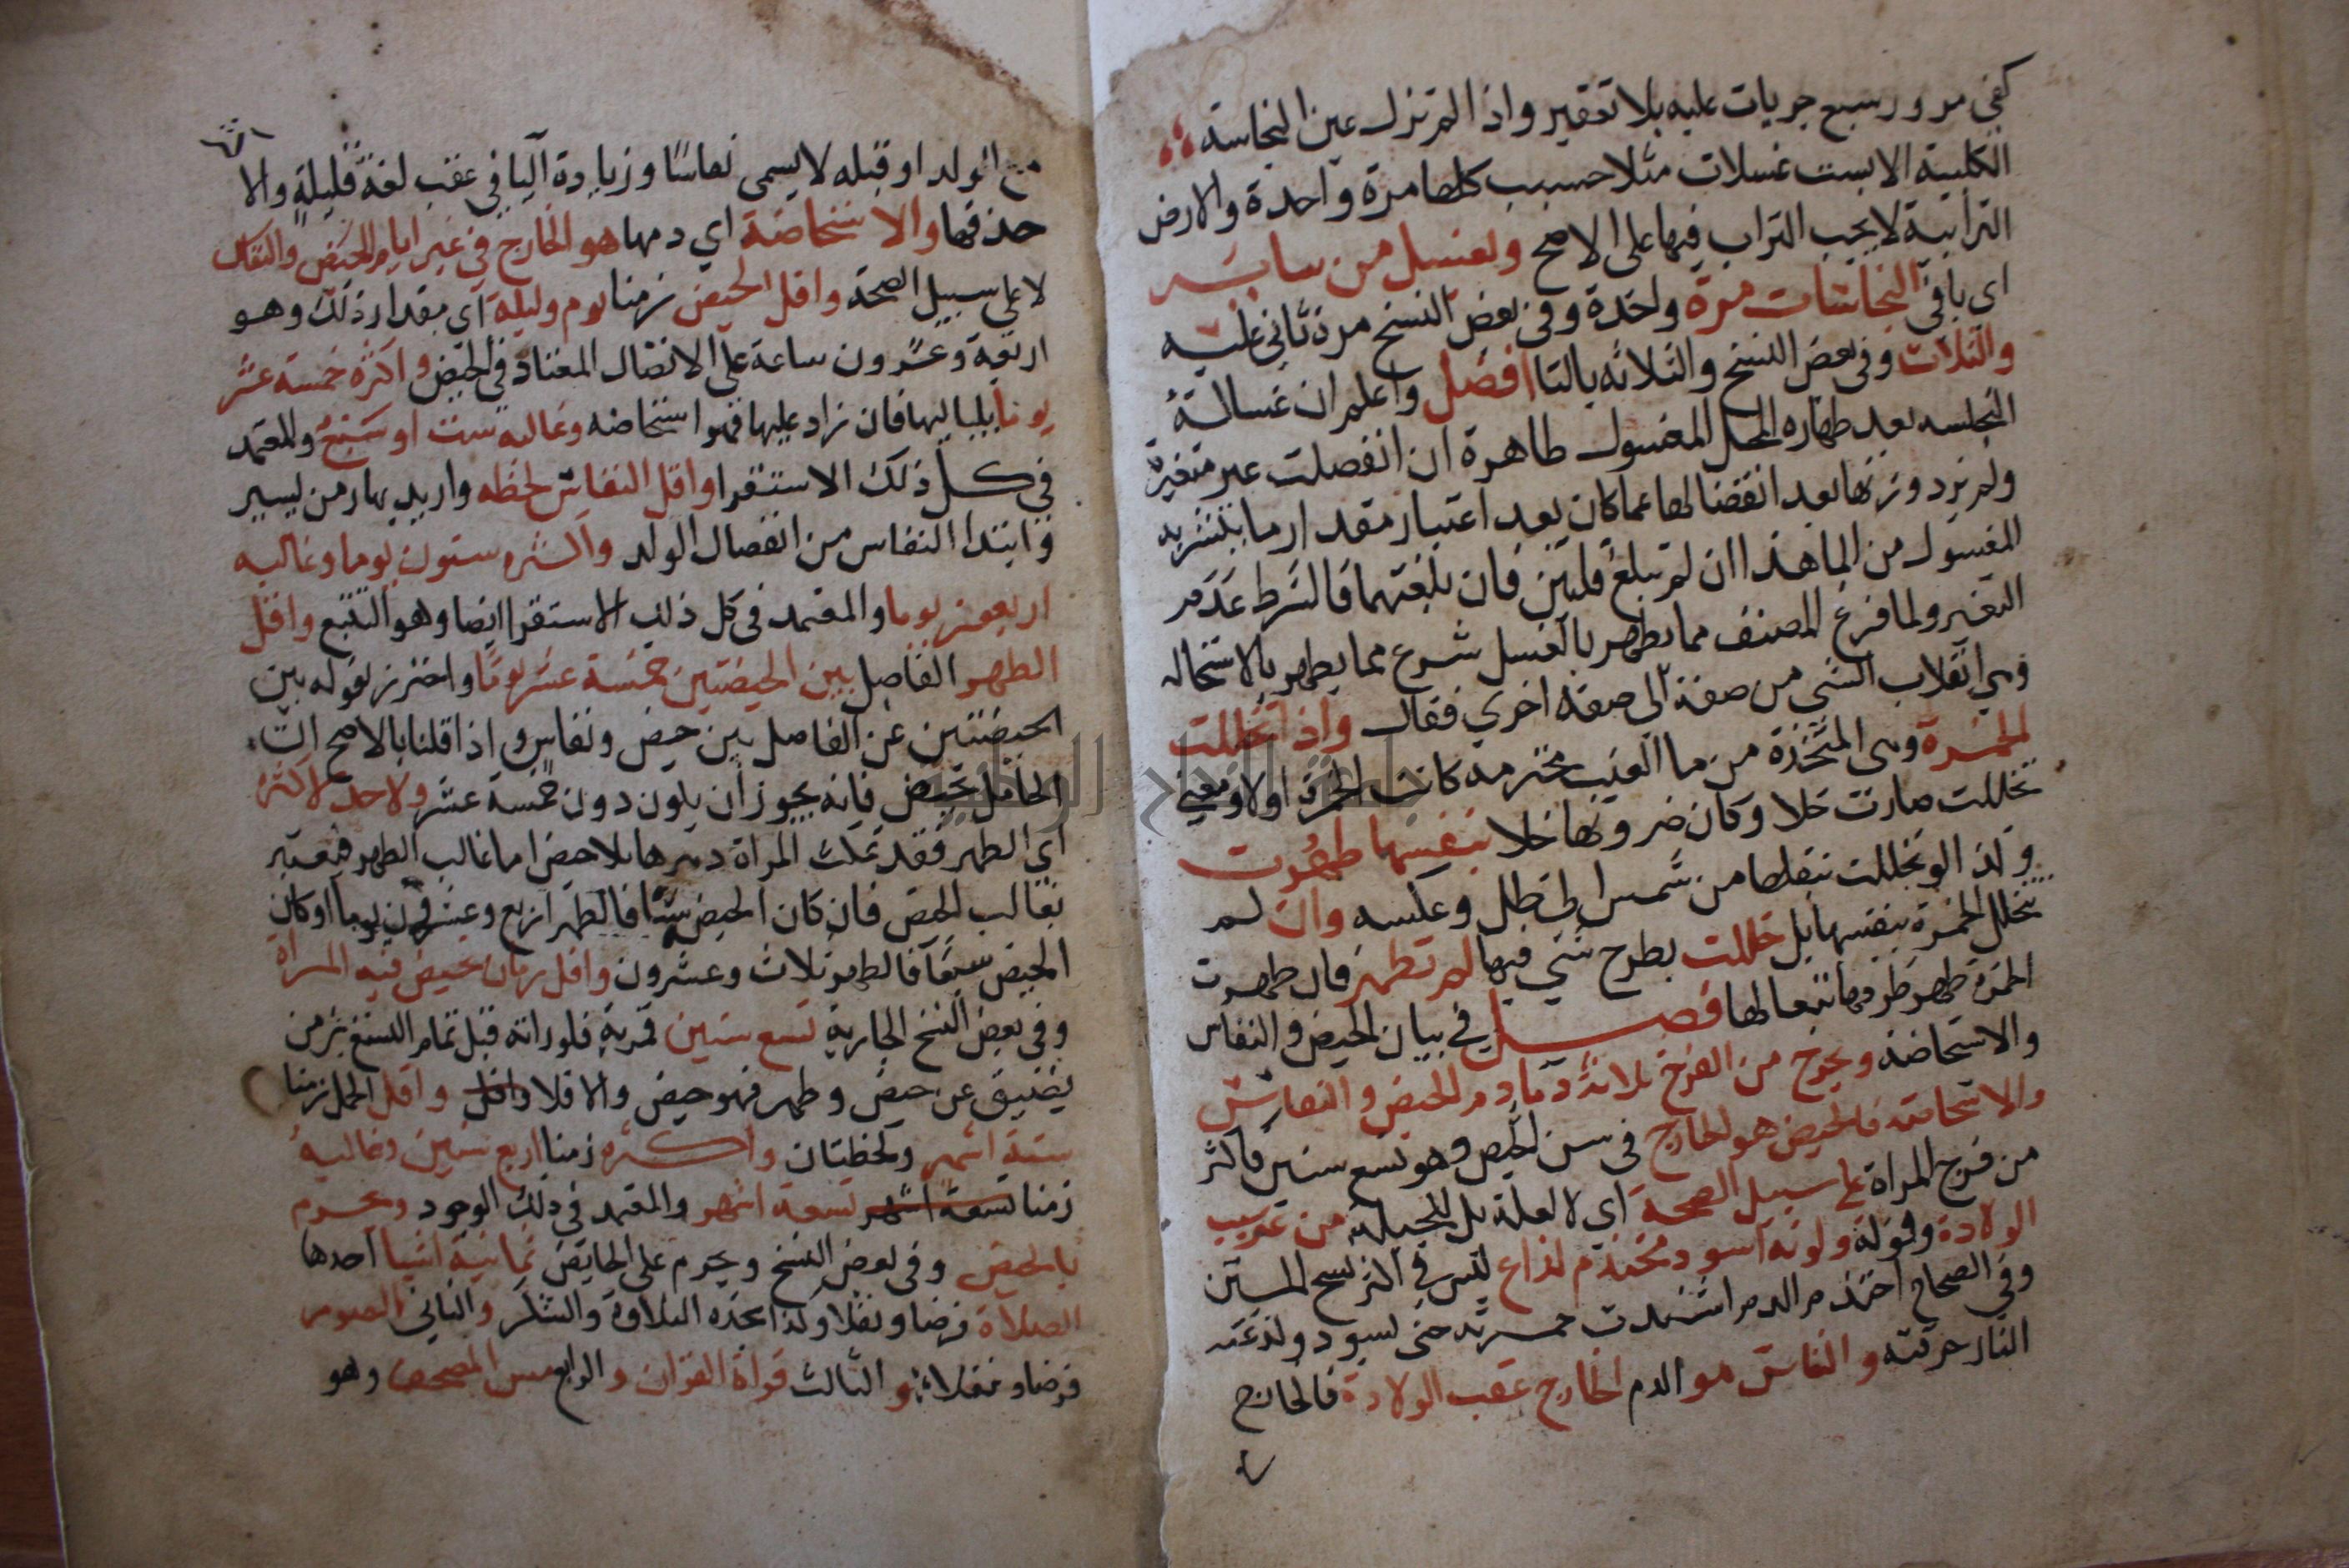 كفى مرور سبع جريات عليه بلا تعفير واذا لم تزل عين النجاسة
الكلبية الا بست غسلات مثلا حسبت كلها مرة واحدة والارض
الترابية لا يجب التراب فيها على الاصح ويغسل من ساير
اي باقي النجاسات مرة واحدة وفي بعض النسخ مرة تاتي عليه
والثلاث وفي بعض النسخ والثلاثه بالتا افضل واعلم ان غسالة
النجاسه بعد طهاره المحل المغسول طاهرة ان انفصلت غير متغيرة
ولم يزد وزنها بعد انفصالها عما كان بعد اعتبار مقدار ما يتشربه
المغسول من الما هذا ان لم تبلغ قلتين فان بلغتهما فالشرط عدم
التغير ولما فرغ المصنف مما يطهر بالغسل شرع مما يطهر بالاستحاله
وهي انقلاب الشي من صفة الى صفة اخري فقال واذا تخللت
الخمرة وهي المتخذة من ما العنب محترمه كانت الخمرة اولا ومعني
تخللت صارت خلا وكان صيرورتها خلا بنفسها طهرت
وكذا لو تخللت بنقلها من شمس الى ظل وعكسه وان لم
يتخلل الخمرة بنفسها بل خللت بطرح شي فيها لم تطهر فان طهرت
الخمرة طهر ظرفها تبعا لها فصل في بيان الحيض والنفاس
والاستحاضه ويخرج من الفرج ثلاثة دما دم الحيض والنفاس
والاستحاضه فالحيض هو الخارج في سن الحيض وهو تسع سنين فاكثر
من فرج المراة على سبيل الصحة اي لا لعلة بل للجبلة من غير سبب
الولادة وقوله ولونه اسود محتدم لذاع ليس في اكثر نسخ المتن
وفي الصحاح احتدم الدم اشتدت حمرته حتى يسود ولذعته
النار حرقته والنفاس هو الدم الخارج عقب الولادة فالخارج
مع الولد او قبله لا يسمى نفاسا وزيادة اليا في عقب لغة قليلة والا
حذفها والاستحاضة اي دمها هو الخارج في غير ايام الحيض والنفاس
لا على سبيل الصحة واقل الحيض زمنا يوم وليلة اي مقدار ذلك وهو
اربعة وعشرون ساعة على الاتصال المعتاد في الحيض واكثره خمسة عشر
يوما بلياليها فان زاد عليها فهو استحاضه وغالبه ست او سبع والمعتمد
في كل ذلك الاستقرا واقل النفاس لحظه واريد بها زمن يسير
وابتدا النفاس من انفصال الولد واكثره ستون يوما وغالبه
اربعون يوما والمعتمد في كل ذلك الاستقرا ايضا وهو التتبع واقل
الطهر الفاصل بين الحيضتين خمسة عشر يوما واحترز بقوله بين
الحيضتين عن الفاصل بين حيض ونفاس اذا قلنا بالاصح ان
الحامل تحيض فانه يجوز أن يكون دون خمسة عشر ولاحد لاكثره
اي الطهر فقد تمكث المراة دهرها بلا حيض اما غالب الطهر فيعتبر
بغالب الحيض فان كان الحيض ستا فالطهر اربع وعشرون يوما او كان
الحيض سبعا فالطهر ثلاث وعشرون واقل زمان تحيض فيه المراة
وفي بعض النسخ الجارية تسع سنين قمرية فلو راته قبل تمام التسع بزمن
يضيق عن حيض وطهر فهو حيض والا فلا واقل واقل الحمل زمنا
ستة اشهر ولحظتان واكثره زمنا اربع سنين وغالبه
زمنا تسعة اشهر تسعة اشهر والمعتمد في ذلك الوجود ويحرم
بالحيض وفي بعض النسخ ويحرم على الحايض ثمانية اشيا احدها
الصلاة فرضا ونفلا وكذا سجده التلاوة والشكر والثاني الصوم
فرضا ونفلا والثالث قراة القران والرابع مس المصحف وهو